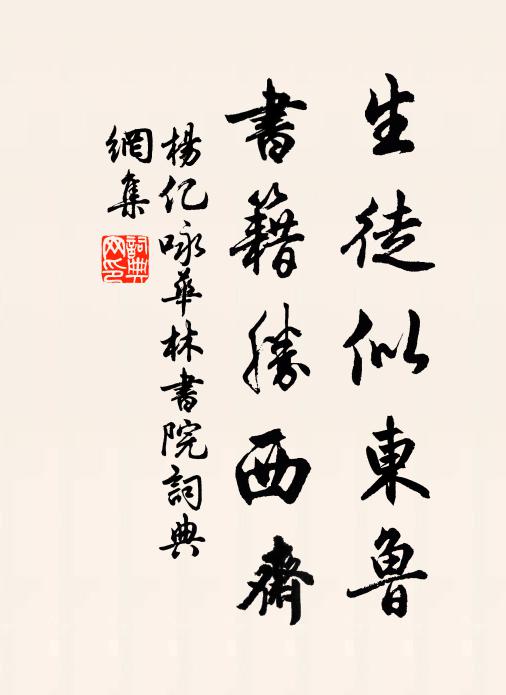 生徒似東魯
書籍勝西齋
楊億咏華林書院詞典
網集
詞典網印